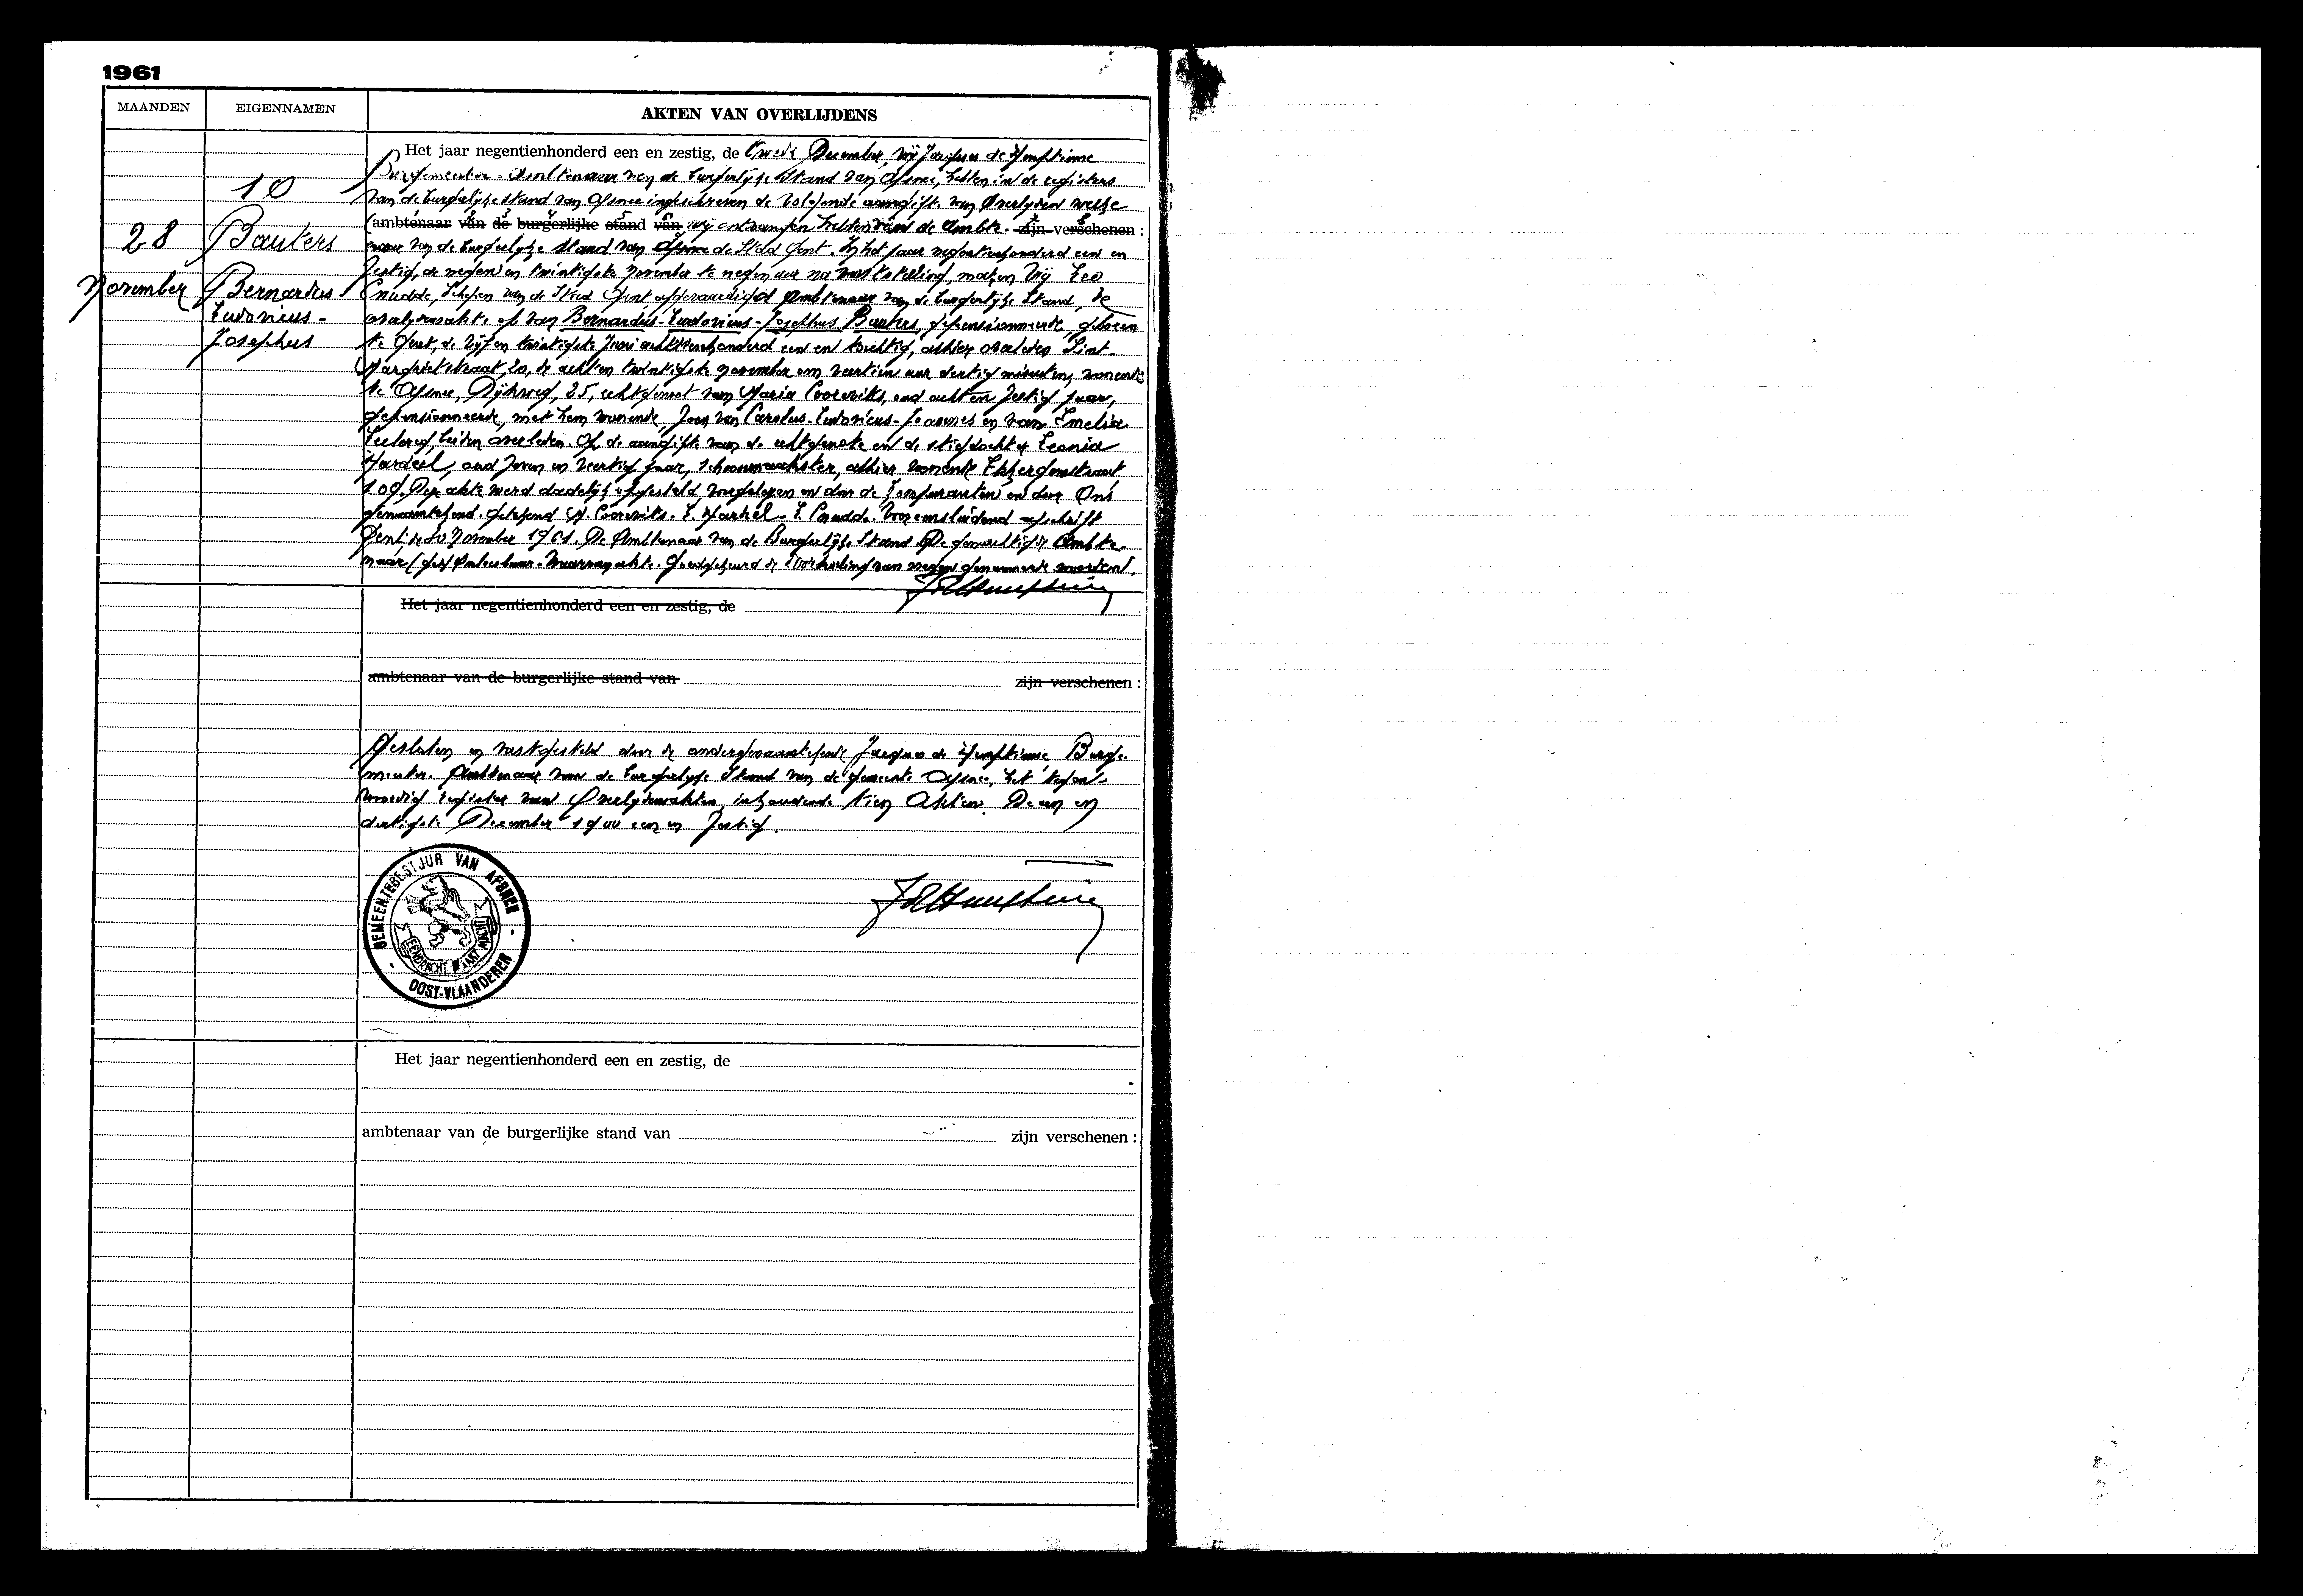 1961
MAANDEN
EIGENNAMEN
AKTEN VAN OVERLIJDENS
10
28
November
Bauters
Bernardus
Ludovicus-
Josephus
Het jaar negentienhonderd een en zestig, de tweede December, wij Jacques de Hemptinne
Burgemeester-Ambtenaar van de burgerlijke stand van Afsnee, hebben in de registers
van de burgerlijke stand van Afsnee ingeschreven de volgende aangifte van Overlyden welke
ambtenaar van de burgerlijke stand van wij ontvangen hebben van de Ambte- zijn verschenen :
naar van de burgerlijke stand van Afsnee de Stad Gent. In het jaar negentienhonderd een en
zestig, de negen en twintigste november te negen uur na vaststelling, maken Wij Leo
Cnudde, Schepen van de Stad Gent afgevaardigd Ambtenaar van de burgerlijke Stand, de
overlydensakte op van Bernardus-Ludovicus-Josephus Bauters, gepensionneerde, geboren
te Gent, de vijf en twintigste Juni achttienhonderd een en tachtig, alhier overleden Sint-
Margrietstraat, 20, de acht en twintigste november om veertien uur dertig minuten, wonende
te Afsnee, Dijkweg, 25, echtgenoot van Maria Cooreviks, oud acht en zestig jaar,
gepensionneerde, met hem wonende, zoon van Carolus-Ludovicus-Joannes en van Emelia
beiden overleden. Op de aangifte van de echtgenote en de stiefdochter Leonia
oud zeven en veertig jaar, schoonmaakster, alhier wonende
109. Deze akte werd dadelijk opgesteld, voorgelezen en door de Komparanten en door Ons
genaamtekend. getekend M. Cooreviks - L. - L. Cnudde. Voor eensluidend afschrift
Gent de 30 November 1961. De Ambtenaar van de Burgerlijke Stand. De gemachtigde Ambte-
naar (get) Waarvan akte. Goedgekeurd de doorhaling van negen genummerde woorden.
Het jaar negentienhonderd een en zestig, de
ambtenaar van de burgerlijke stand van zijn verschenen :
Gesloten en vastgesteld door de ondergenaamtekende Jacques de Hemptinne, Burge-
meester-Ambtenaar van de burgerlyke Stand van de gemeente Afsnee, het tegen-
woordig register van Overlydensakten, inhoudende tien Akten. De een en
dertigste December 1900 een en zestig.
GEMEENTEBESTUUR VAN AFSNEE
EENDRACHT MAAKT MACHT
OOST-VLAANDEREN
Het jaar negentienhonderd een en zestig, de
ambtenaar van de burgerlijke stand van zijn verschenen :